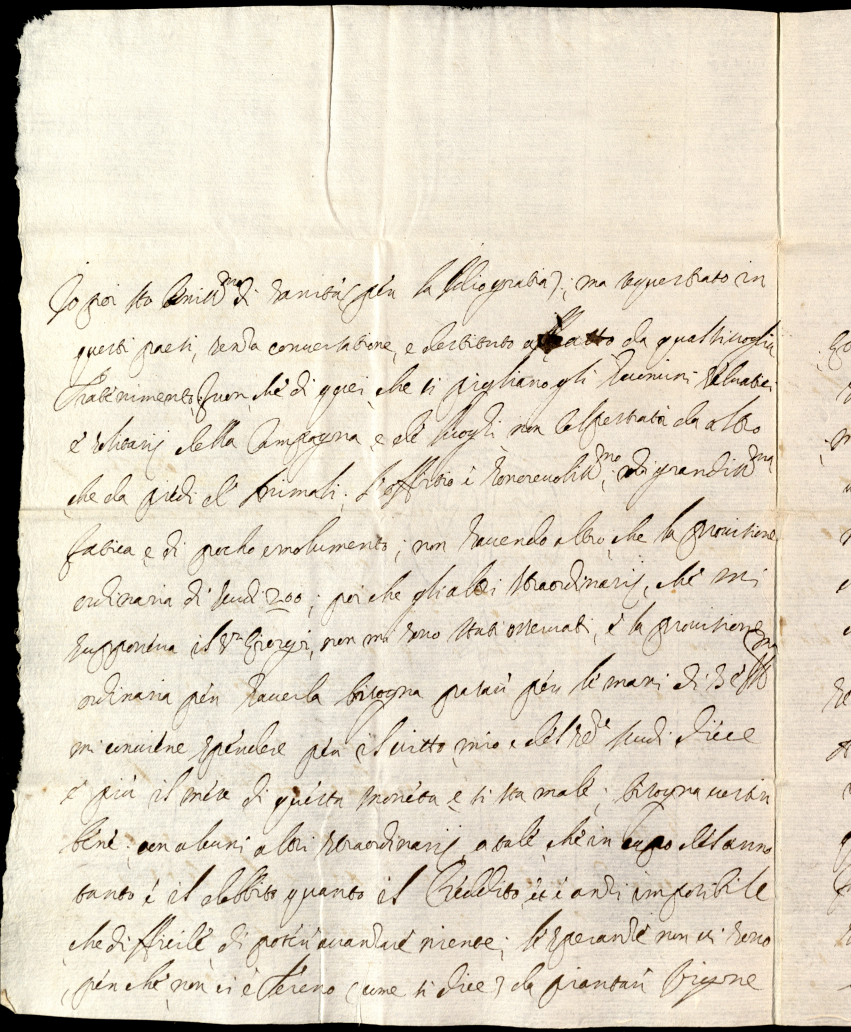 Io poi sto benissmo di sanità (per la Dio gratia); ma sequestrato in
questi paesi, senza conuersatione, e destituto affatto da qualsiuoglia
Trattenimento fuor, che di quei, che si pigliano gli huomini seluatici
e solitarij della Campagna, e de luoghi non calpestrati da altro
che da piedi d'Animali. L'offitio è honoreuolissmo, di grandissma
fatica, e di pocho emolumento; non hauendo altro, che la prouisione
ordinaria di scudi 200; poi che gli altri straordinarij, che mi
supponeua il Sr Giorgi, non mi sono stati osseruati, e la prouisione
ordinaria per hauerla bisogna passar per le mani di
mi conuiene spendere per il uitto mio e del scudi diece
e più il mese di questa moneta e si sta male; bisogna uestir
bene con alcuni altri straordinarij, a tale, che in capo del anno
tanto è il debbito quanto il Creddito, et è anzi imposibile
che difficile di poter auanzare niente; le speranze non ui sono
per che non ci è Tereno (come si dice) da piantar Vigne